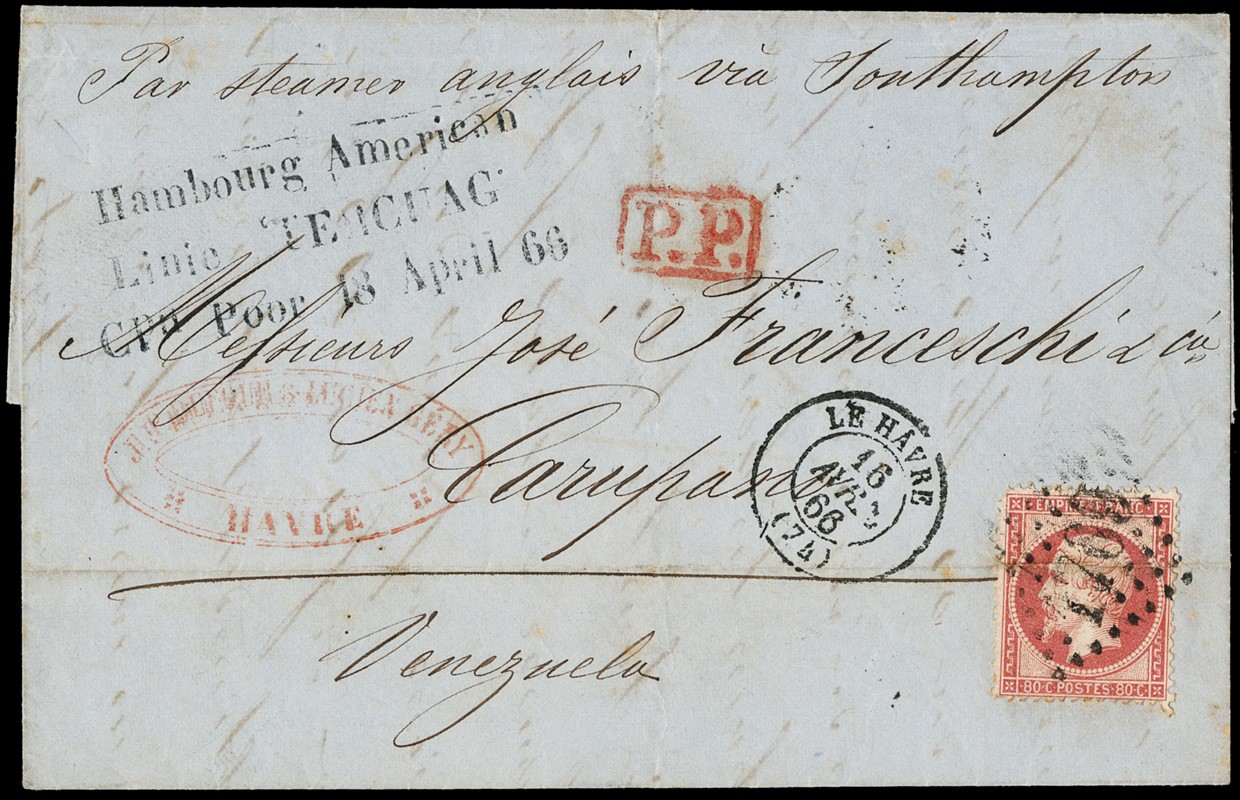 Par steamer anglais via Southampton
Hambourg American
Linie TEUCUAG
Cpn Poor 18 April 66
P.P.
Messieurs José Franceschi & Cia
LUCIEN
HAVRE
Carupano
LE HAVRE
16
AVRIL
66
(74)
Venezuela
EMPIRE FRANC
1769
80·C POSTES·80·C